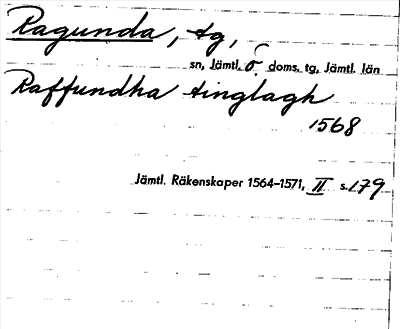 Ragunda, tg,
sn, Jämtl. ö. doms. tg, Jämtl. län
Raffundha tinglagh
1568
Jämtl. Räkenskaper 1564-1571, II s. 179